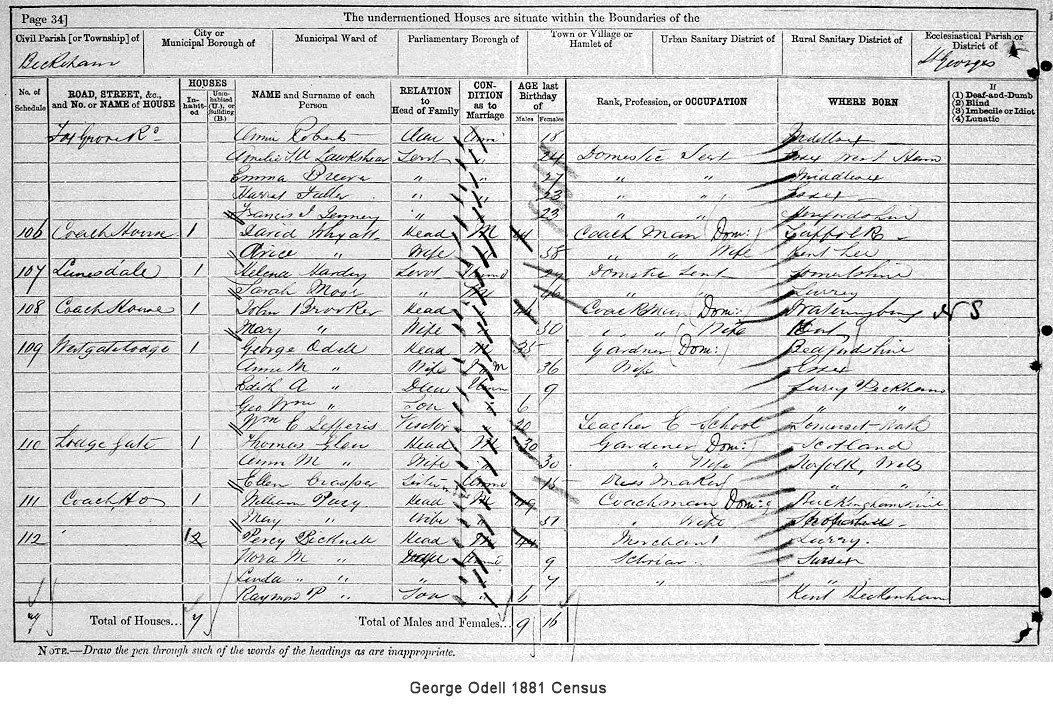 Page 34]
The undermentioned Houses are situate within the Boundaries of the
Civil Parish [or Township] of
City or Municipal Borough of
Municipal Ward of
Parliamentary Borough of
Town or Village or Hamlet of
Urban Sanitary District of
Rural Sanitary District of
Ecclesiastical Parish or District of
Beckenham
St Georges
No. of Schedule
ROAD, STREET, &c., and No. or NAME of HOUSE
HOUSES
In-habit-ed
Unin-habited (U.), or Building (B.)
NAME and Surname of each Person
RELATION to Head of Family
CON-DITION as to Marriage
AGE last Birthday of
Males
Females
Rank, Profession, or OCCUPATION
WHERE BORN
If
(1) Deaf-and-Dumb
(2) Blind
(3) Imbecile or Idiot
(4) Lunatic
Fox Grove Rd Annie Roberts 18 Middlesex
Amelia Servt 24 Domestic Servt West Ham
Emma " " 27 " " Middlesex
Harriet Fuller " " 23 " " Essex
Francis J " " 23 " "
106 Coach House 1 David Whyatt Head M Coach Man (Dom:) Suffolk
" Wife " 58 " " Wife Kent Lee
107 Lunesdale 1 Helena Servt Domestic Servt
Sarah Moor " Surrey
108 Coach House 1 John Brooker Head (Dom: Wateringbury
Mary " Wife " 50 " " (Wife Kent
109 Westgate Lodge 1 George Odell Head M 35 Gardner (Dom:) Bedfordshire
Annie M " Wife M 36 Wife Essex
Edith A " 9 Surry Peckham
Geo Wm " Son " 6 " "
Wm E Jefferis Visitor " 20 Teacher E School Somerset
110 Lodge Gate 1 Thomas Glen Head M 30 Gardener Dom: Scotland
Annie M " Wife " 30 " Wife Norfolk, Wells
Ellen Dress Maker " "
111 Coach Ho 1 William Head M 49 Coachman Dom: Buckinghamshire
Mary " Wife " 51 " Wife
112 Percy Bicknell Head M 44 Merchant Surrey
Nora M " 9 Scholar Sussex
Linda " " " 7 " "
Raymond P " Son " 6 Kent Beckenham
Total of Houses... 7
Total of Males and Females... 9 16
NOTE.—Draw the pen through such of the words of the headings as are inappropriate.
George Odell 1881 Census